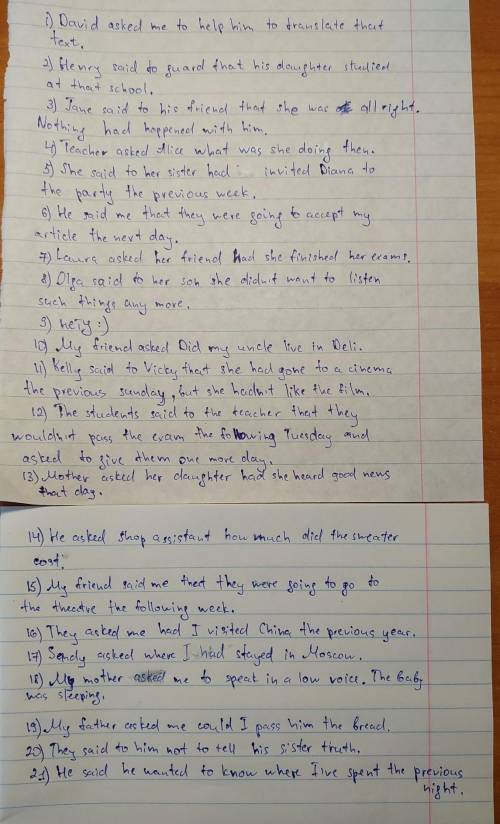 1) David asked me to help him to translate that
text.
2) Henry said to guard that his daughter studied
at that school.
3) Jane said to his friend that she was all right.
Nothing had happened with him.
4) Teacher asked Alice what was she doing then.
5) She said to her sister had invited Diana to
the party the previous week.
6) He said me that they were going to accept my
article the next day.
7) Laura asked her friend had she finished her exams.
8) Olga said to her son she didn't want to listen
such things any more.
9) нету :)
10) My friend asked Did my uncle live in Deli.
11) Kelly said to Vicky that she had gone to a cinema
the previous sunday, but she hadn't like the film.
12) The students said to the teacher that they
wouldn't pass the exam the following Tuesday and
asked to give them one more day.
13) Mother asked her daughter had she heard good news
that day.
14) He asked shop assistant how much did the sweater
cost.
15) My friend said me that they were going to go to
the theatre the following week.
16) They asked me had I visited China the previous year.
17) Sendy asked where I had stayed in Moscow.
18) My mother asked me to speak in a low voice. The baby
was sleeping.
19) My father asked me could I pass him the bread.
20) They said to him not to tell his sister truth.
21) He said he wanted to know where I've spent the previous
night.